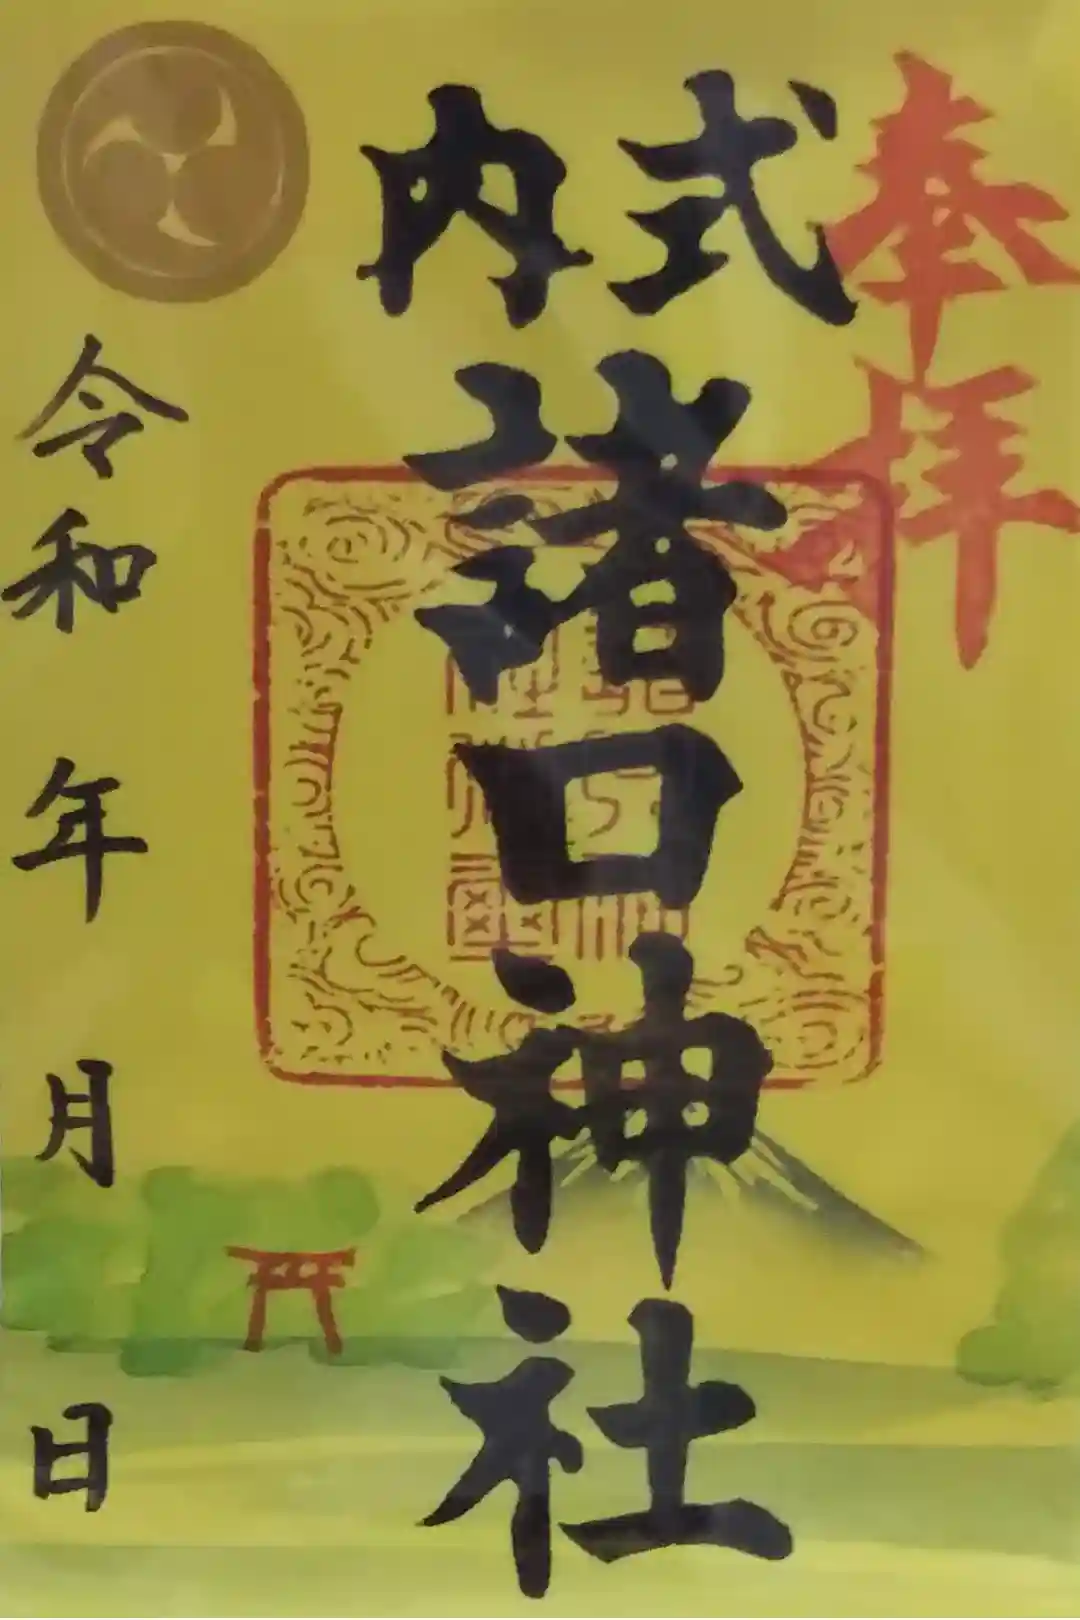 奉拝
式内
諸口神社
令和　年　月　日